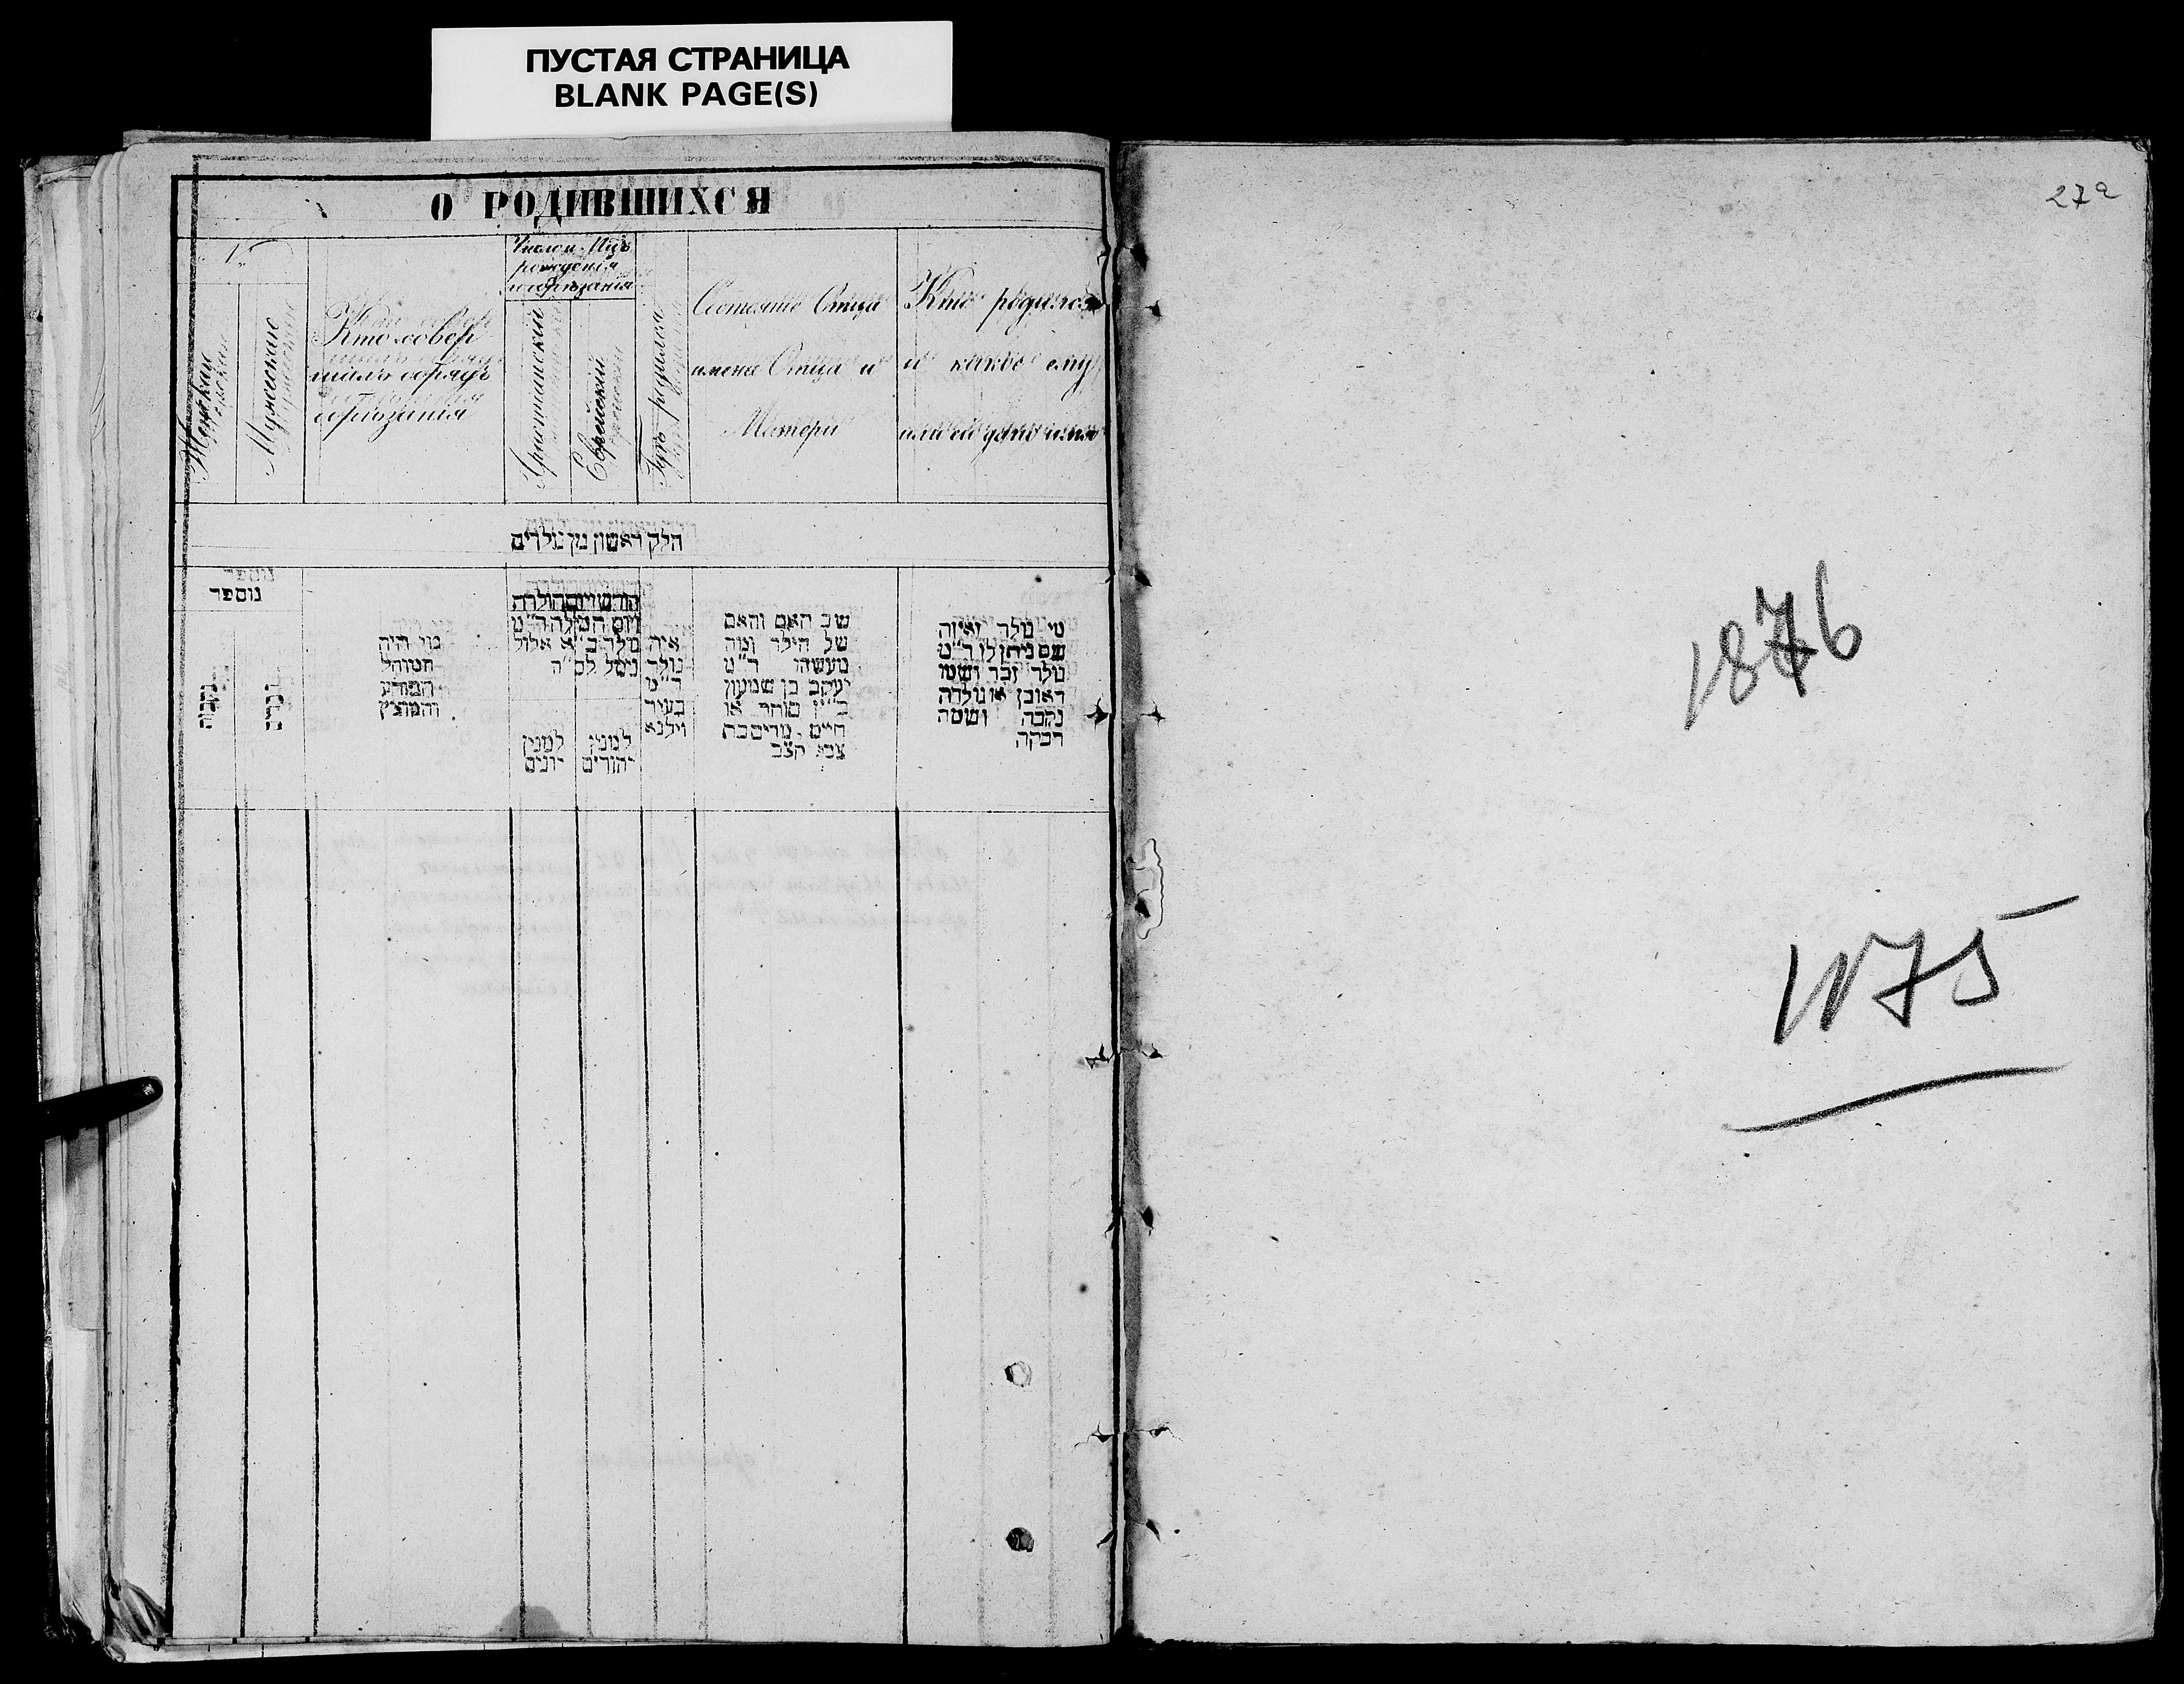 ПУСТАЯ СТРАНИЦА
BLANK PAGE(S)
О РОДИВШИХСЯ
№
Женскаго
Мужескаго
Кто совер
шалъ обрядъ
обрѣзанія
Число и Мцъ
рожденія
и обрѣзанія
Христіанскій
Еврейскій
Гдѣ родился
Состояніе Отца
имена Отца и
Матери
Кто родился
и какое ему
или ей дано имя
חלק ראשון מן נולדים
נומפר
נקבה
זכרים
מי היה
המוהל
הפורע
והמוצץ
חודש ויום הולדת
ויום המילה ד״מ
נולד כ״א אלול
נימל לס״ה
למנין
יונים
למנין
יהודים
איה
נולד
ד״מ
בעיר
וילנא
שב האם והאם
של הילד ומה
מעשהו ד״מ
יעקב בן שמעון
כ״ץ סוחר או
חיים, מרים בת
צבי קצב
מי נולד ואיזה
שם ניתן לו ד״מ
נולד זכר ושמו
ראובן או נולדה
נקבה ושמה
רבקה
272
1876
1875